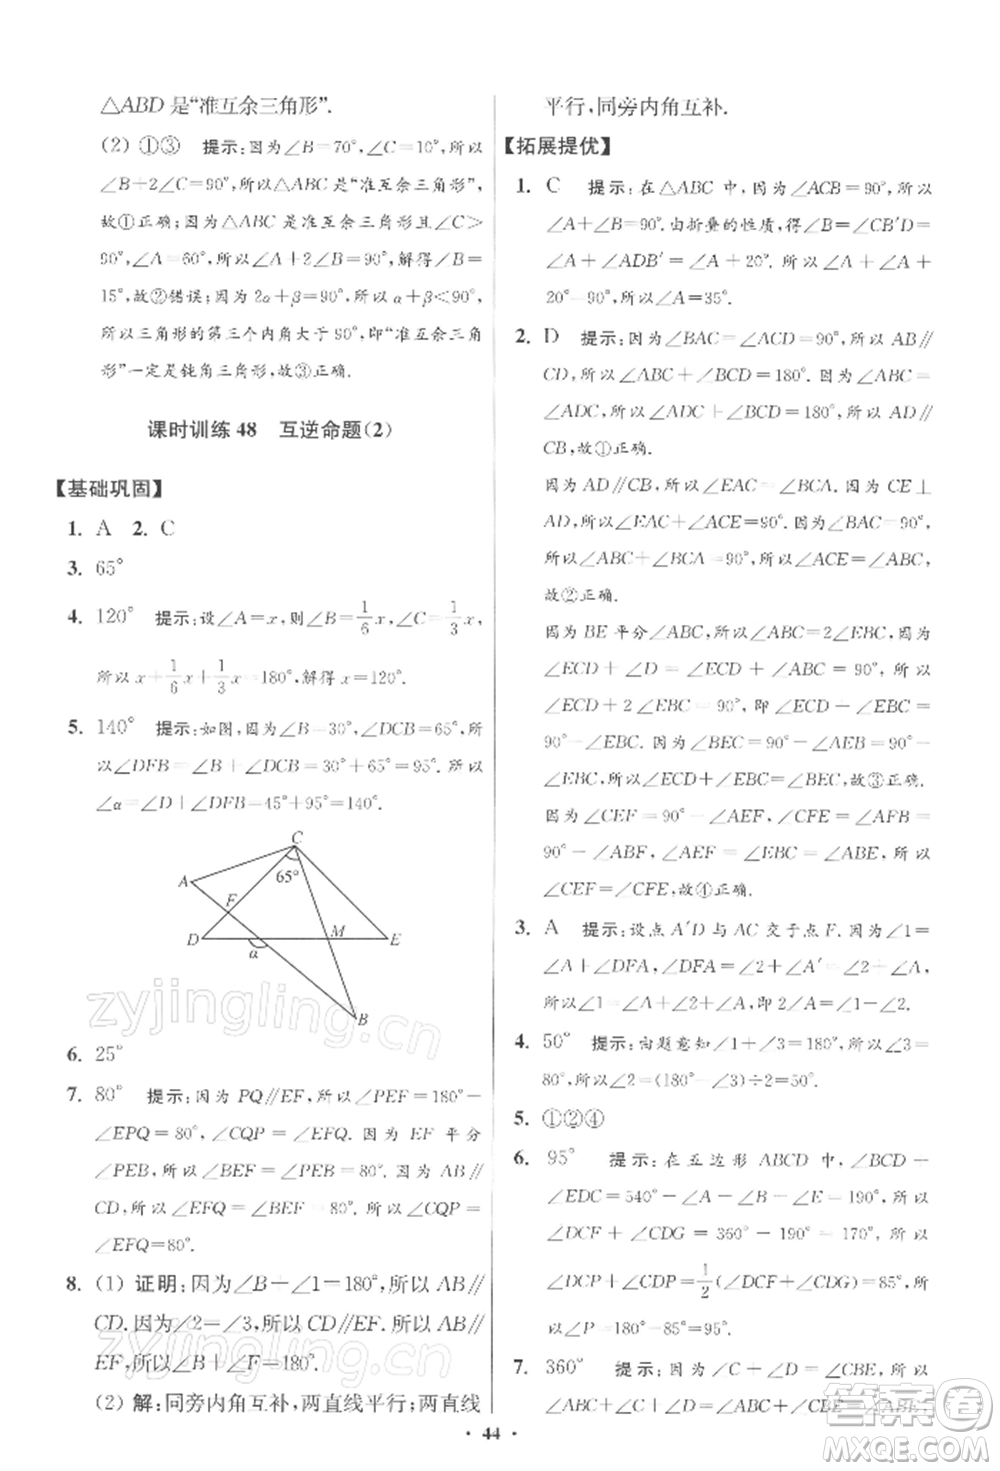 △ABD是“准互余三角形”.
(2) ①③ 提示:因为∠B=70°,∠C=10°,所以
∠B+2∠C=90°,所以△ABC是“准互余三角形”,
故①正确;因为△ABC是准互余三角形且∠C>
90°,∠A=60°,所以∠A+2∠B=90°,解得∠B=
15°,故②错误;因为2α+β=90°,所以α+β<90°,
所以三角形的第三个内角大于90°,即“准互余三角
形”一定是钝角三角形,故③正确.
课时训练48 互逆命题(2)
【基础巩固】
1. A 2. C
3. 65°
4. 120° 提示:设∠A=x,则∠B=1/6x,∠C=1/3x,
所以x+1/6x+1/3x=180°,解得x=120°.
5. 140° 提示:如图,因为∠B=30°,∠DCB=65°,所
以∠DFB=∠B+∠DCB=30°+65°=95°,所以
∠α=∠D+∠DFB=45°+95°=140°.
C
65°
A
F
D
α
M
E
B
6. 25°
7. 80° 提示:因为PQ∥EF,所以∠PEF=180°-
∠EPQ=80°,∠CQP=∠EFQ.因为EF平分
∠PEB,所以∠BEF=∠PEF=80°.因为AB∥
CD,所以∠EFQ=∠BEF=80°,所以∠CQP=
∠EFQ=80°.
8. (1) 证明:因为∠B+∠1=180°,所以AB∥
CD.因为∠2=∠3,所以CD∥EF.所以AB∥
EF,所以∠B+∠F=180°.
(2) 解:同旁内角互补,两直线平行;两直线
平行,同旁内角互补.
【拓展提优】
1. C 提示:在△ABC中,因为∠ACB=90°,所以
∠A+∠B=90°.由折叠的性质,得∠B=∠CB'D=
∠A+∠ADB'=∠A+20°.所以∠A+∠A+20°=
90°,所以∠A=35°.
2. D 提示:因为∠BAC=∠ACD=90°,所以AB∥
CD,所以∠ABC+∠BCD=180°.因为∠ABC=
∠D,所以∠D+∠BCD=180°,所以AD∥
CB,故①正确.
因为AD∥CB,所以∠EAC=∠BCA.因为CE⊥
AD,所以∠EAC+∠ACE=90°.因为∠ABC+∠BCA=90°,
所以∠ABC+∠BCA=∠EAC+∠ACE,所以∠ABC=∠ACE,
故②正确.
因为BE平分∠ABC,所以∠ABC=2∠EBC.因为
∠ECD+∠D=90°,∠D=∠ABC,所以
∠ECD+2∠EBC=90°,即∠ECD+∠EBC=90°-
∠EBC.因为∠BEC=90°-∠AEB=90°-
∠EBC,所以∠ECD+∠EBC=∠BEC,故③正确.
因为∠CEF=90°-∠AEF,∠CFE=∠AFB=
90°-∠ABF,∠AEB=∠EBC=∠ABE,所以
∠CEF=∠CFE,故④正确.
3. A 提示:设点A'D与AC交于点F.因为∠1=
∠A+∠DFA,∠DFA=∠2+∠A'=∠2+∠A,
所以∠1=∠A+∠2+∠A,即2∠A=∠1-∠2.
4. 50° 提示:由题意知∠1+∠2=180°,所以∠3=
80°,所以∠2=(180°-∠3)÷2=50°.
5. ①②④
6. 95° 提示:在五边形ABCD中,∠BCD+
∠EDC=540°-∠A-∠B-∠E=190°,所以
∠DCF+∠CDG=360°-190°=170°,所以
∠DCP+∠CDP=1/2(∠DCF+∠CDG)=85°,所
以∠P=180°-85°=95°.
7. 360° 提示:因为∠C+∠D=∠CBE,所以
44
zyjingling.cn
zyjingling.cn
答案卷
MXQE.COM